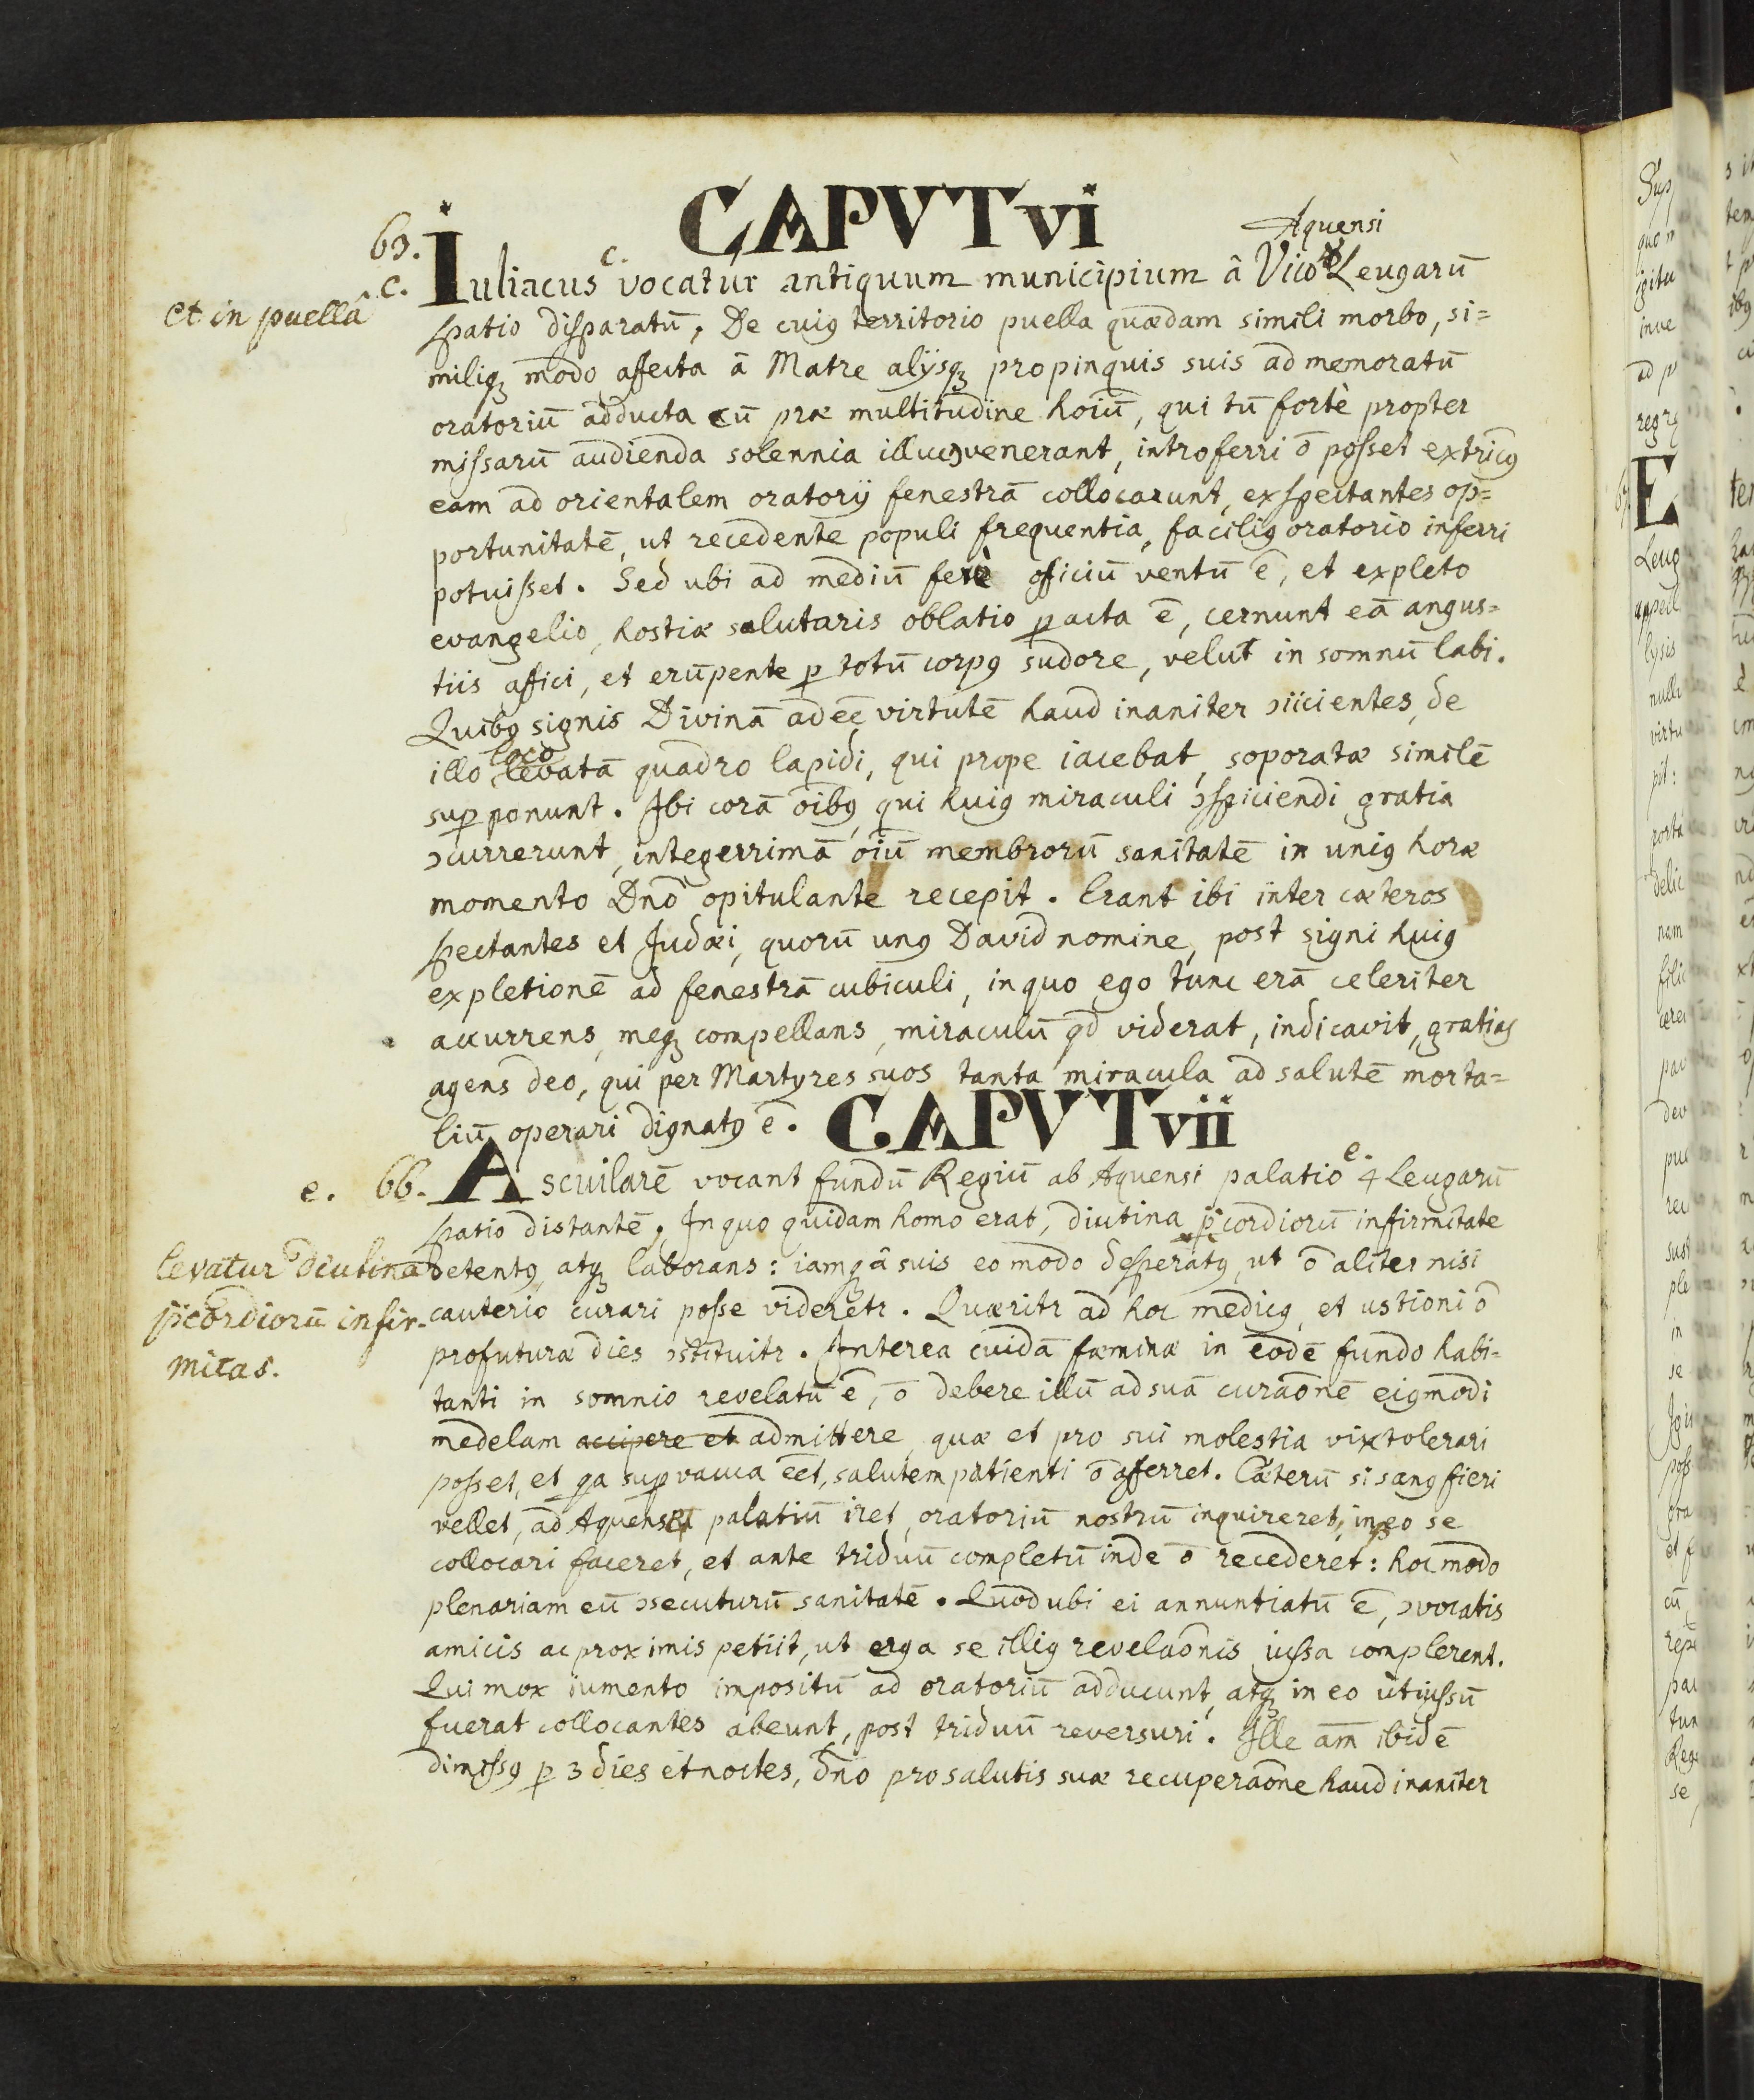 CAPVT vi
Aquensi
65. Iuliacus c. vocatur antiquum municipium â Vico 8 Leugarū
c.
et in puellâ
spatio disparatū, De cuiꝯ territorio puella quædam simili morbo, si=
miliqꝫ modo affecta â Matre alijsqꝫ propinquis suis ad memoratū
oratoriū adducta cū præ multitudine hoiū, qui tū fortè propter
missarū audienda solennia illuc ꝯvenerant, introferri ō posset extricꝯ
eam ad orientalem oratorij fenestrā collocarunt, exspectantes op=
portunitatē, ut recedente populi frequentia, faciliꝯ oratorio inferri
potuisset. Sed ubi ad mediū ferè officiū ventū ē, et expleto
evangelio, hostiæ salutaris oblatio ꝑacta ē, cernunt eā angus=
tiis affici, et erūpente ꝑ totū corpꝯ sudore, velut in somnū labi.
Quibꝯ signis Divinā adēē virtutē haud inaniter ꝯiicientes, de
illo loco levatā quadro lapidi, qui prope iacebat, soporatæ similē
suꝑponunt. Ibi corā oībꝯ, qui huiꝯ miraculi ꝯspiciendi gratia
ꝯcurrerunt, integerrimā oīū membrorū sanitatē in uniꝯ horæ
momento Dn̄o opitulante recepit. Erant ibi inter cæteros
spectantes et Judæi, quorū unꝯ David nomine, post signi huiꝯ
expletionē ad fenestrā cubiculi, in quo ego tunc erā celeriter
accurrens, meqꝫ compellans, miraculū qd̄ viderat, indicavit, gratias
agens deo, qui per Martyres suos tanta miracula ad salutē morta=
liū operari dignatꝯ ē. CAPVT vii
e. 66. Ascuilarē vocant fundū Regiū ab Aquensi palatio e. 4 Leugarū
spatio distantē, In quo quidam homo erat, diutina p̄cordiorū infirmitate
levatur diutina
detentꝯ, atqꝫ laborans: iamqꝫ â suis eo modo desperatꝯ, ut ō aliter nisi
p̄cordiorū infir-
cauterio curari posse videretr. Quæritr ad hoc medicꝯ, et ustioni ō
mitas.
profuturæ dies ꝯstituitr. Interea cuidā fæminæ in eodē fundo habi=
tanti in somnio revelatū ē, ō debere illū ad suā curaōnē eiꝯmodi
medelam accipere et admittere, quæ et pro sui molestia vix tolerari
posset, et qa suꝑvacua ēēt, salutem patienti ō afferret. Cæterū si sanꝯ fieri
vellet, ad Aquense palatiū iret, oratoriū nostrū inquireret, in eo se
collocari faceret, et ante triduū completū inde ō recederet: hoc modo
plenariam eū ꝯsecuturū sanitatē. Quod ubi ei annuntiatū ē, ꝯvocatis
amicis ac proximis petiit, ut erga se illiꝯ revelaōnis iussa complerent.
Qui mox iumento impositū ad oratoriū adducunt, atqꝫ in eo ut iussū
fuerat collocantes abeunt, post triduū reversuri. Ille am̄ ibidē
dimissꝯ ꝑ 3 dies et noctes, Dn̄o pro salutis suæ recuperaōne haud inaniter